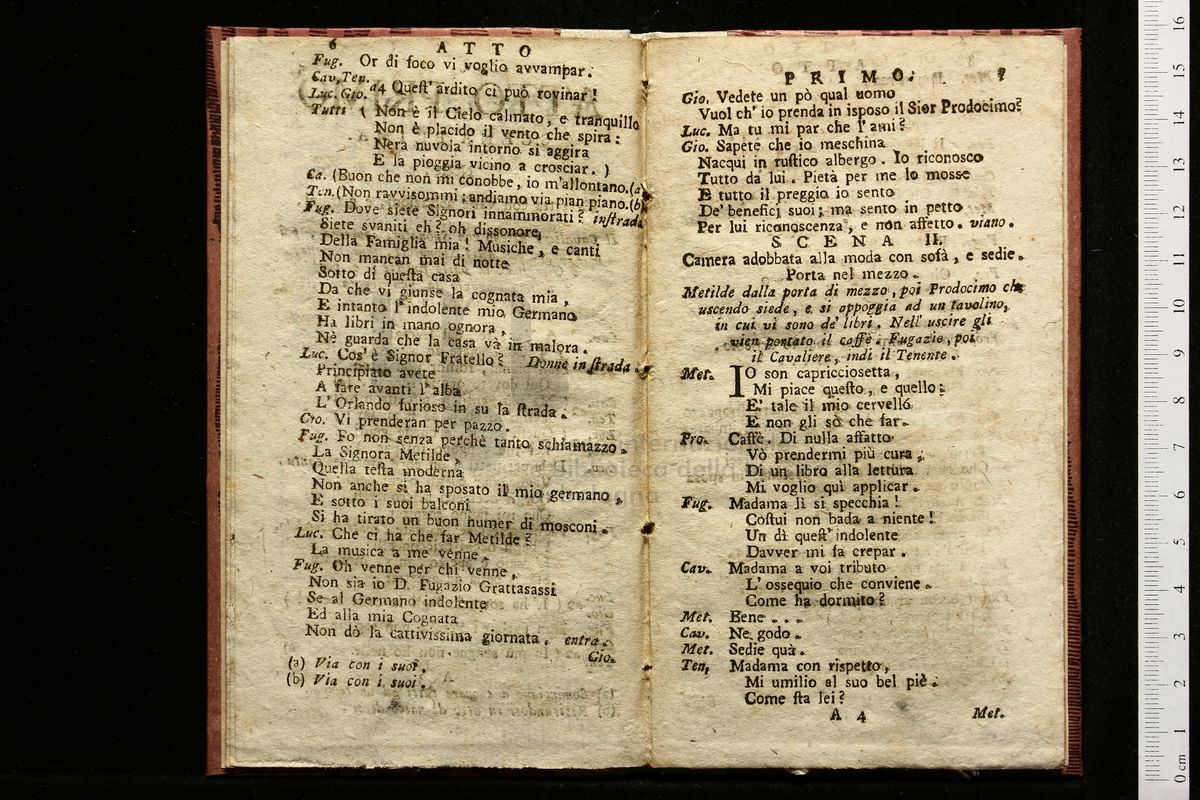 6 ATTO
Fug. Or di foco vi voglio avvampar.
Cav. Ten.
Luc. Gio. a4 Quest' ardito ci può rovinar!
Tutti ( Non è il Cielo calmato, e tranquillo
Non è placido il vento che spira:
Nera nuvola intorno si aggira
E la pioggia vicino a crosciar. )
Ca. (Buon che non mi conobbe, io m'allontano.(a)
Ten. (Non ravvisommi; andiamo via pian piano.(b)
Fug. Dove siete Signori innammorati? instrada
Siete svaniti eh? oh dissonore,
Della Famiglia mia! Musiche, e canti
Non mancan mai di notte
Sotto di questa casa
Da che vi giunse la cognata mia,
E intanto l'indolente mio Germano
Ha libri in mano ognora,
Nè guarda che la casa và in malora.
Luc. Cos' è Signor Fratello? Donne in strada.
Principiato avete
A fare avanti l'alba
L'Orlando furioso in su la strada.
Cio. Vi prenderan per pazzo.
Fug. Fo non senza perchè tanto schiamazzo.
La Signora Metilde,
Quella testa moderna
Non anche si ha sposato il mio germano,
E sotto i suoi balconi
Si ha tirato un buon numer di mosconi.
Luc. Che ci ha che far Metilde?
La musica a me venne.
Fug. Oh venne per chi venne,
Non sia io D. Fugazio Grattasassi
Se al Germano indolente
Ed alla mia Cognata
Non dò la cattivissima giornata. entra.
Gio.
(a) Via con i suoi.
(b) Via con i suoi.
PRIMO. 7
Gio. Vedete un pò qual uomo
Vuol ch' io prenda in isposo il Sior Prodocimo?
Luc. Ma tu mi par che l'ami?
Gio. Sapete che io meschina
Nacqui in rustico albergo. Io riconosco
Tutto da lui. Pietà per me lo mosse
E tutto il preggio io sento
De' benefici suoi; ma sento in petto
Per lui riconoscenza, e non affetto. viano.
SCENA II.
Camera adobbata alla moda con sofà, e sedie.
Porta nel mezzo.
Metilde dalla porta di mezzo, poi Prodocimo che
uscendo siede, e si appoggia ad un tavolino,
in cui vi sono de' libri. Nell' uscire gli
vien portato il caffè. Fugazie, poi
il Cavaliere, indi il Tenente.
Met. IO son capricciosetta,
Mi piace questo, e quello:
E' tale il mio cervello
E non gli sò che far.
Pro. Caffè. Di nulla affatto
Vò prendermi più cura,
Di un libro alla lettura
Mi voglio quì applicar.
Fug. Madama lì si specchia!
Costui non bada a niente!
Un dì quest' indolente
Davver mi fa crepar.
Cav. Madama a voi tributo
L'ossequio che conviene.
Come ha dormito?
Met. Bene...
Cav. Ne godo.
Met. Sedie quà.
Ten. Madama con rispetto,
Mi umilio al suo bel piè.
Come sta lei?
A 4 Met.
16
15
14
13
12
11
10
9
8
7
6
5
4
3
2
1
0 cm